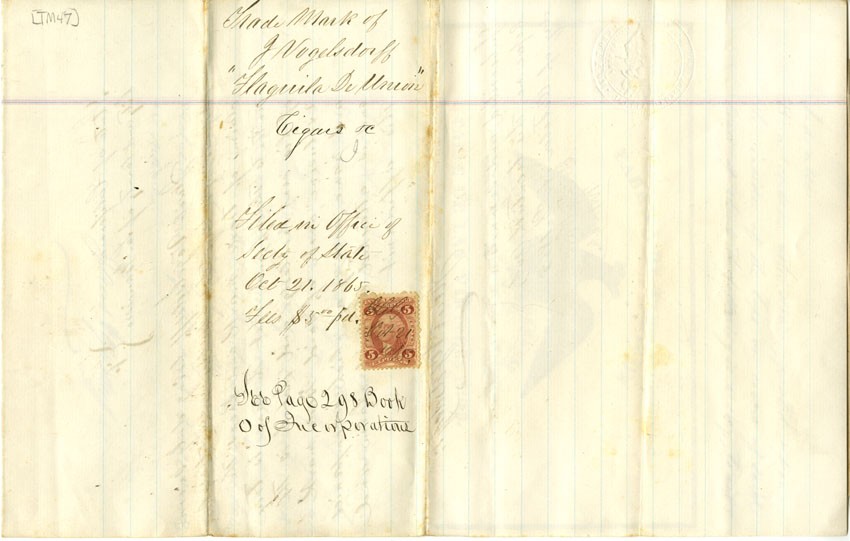 [TM47]
Trade Mark of
J Vogelsdorff
"Flaguila De Union"
Cigars &c
Filed in Office of
Secty of State
Oct 21. 1865.
Fees $5.00 pd.
Oct 21
5 5
See Page 298 Book
O of Incorporations